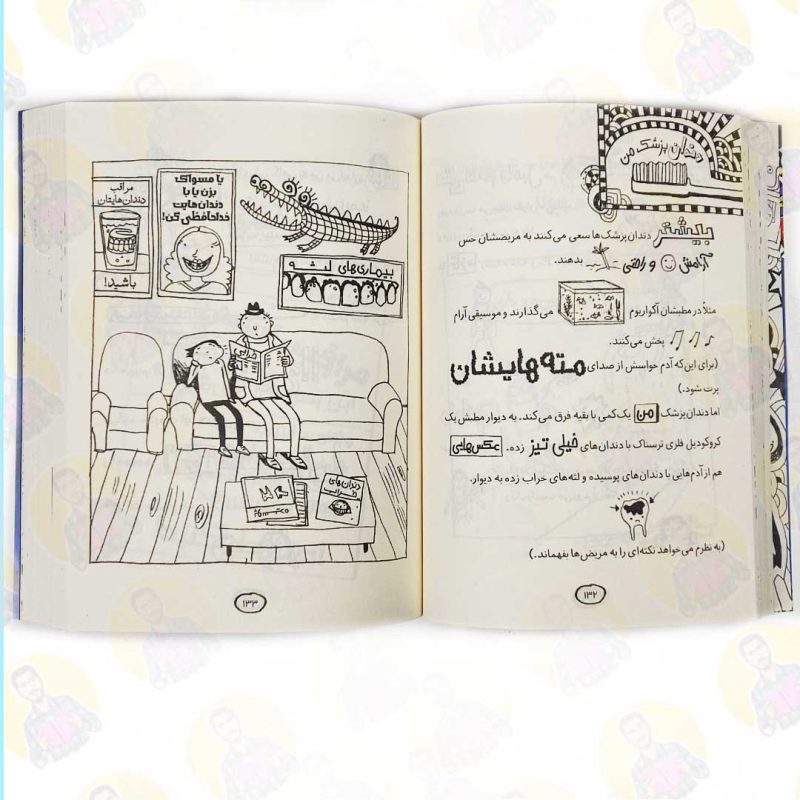 دندان پزشک من
بیشتر دندان‌پزشک‌ها سعی می‌کنند به مریضشان حس
آرامش و راحتی بدهند.
مثلاً در مطبشان آکواریوم می‌گذارند و موسیقی آرام
پخش می‌کنند.
(برای این‌که آدم حواسش از صدای مته‌هایشان
پرت شود.)
اما دندان‌پزشک من یک‌کمی با بقیه فرق می‌کند. به دیوار مطبش یک
کروکودیل فلزی ترسناک با دندان‌های خیلی تیز زده. عکس‌هایی
هم از آدم‌هایی با دندان‌های پوسیده و لثه‌های خراب زده به دیوار.
(به نظرم می‌خواهد نکته‌ای را به مریض‌ها بفهماند.)
۱۳۲
یا مسواک
بزن یا با
دندان‌هایت
خداحافظی کن!
مراقب
دندان‌هایتان
باشید!
بیماری‌های لثه
خرابی
دندان‌های
خراب
۱۳۳